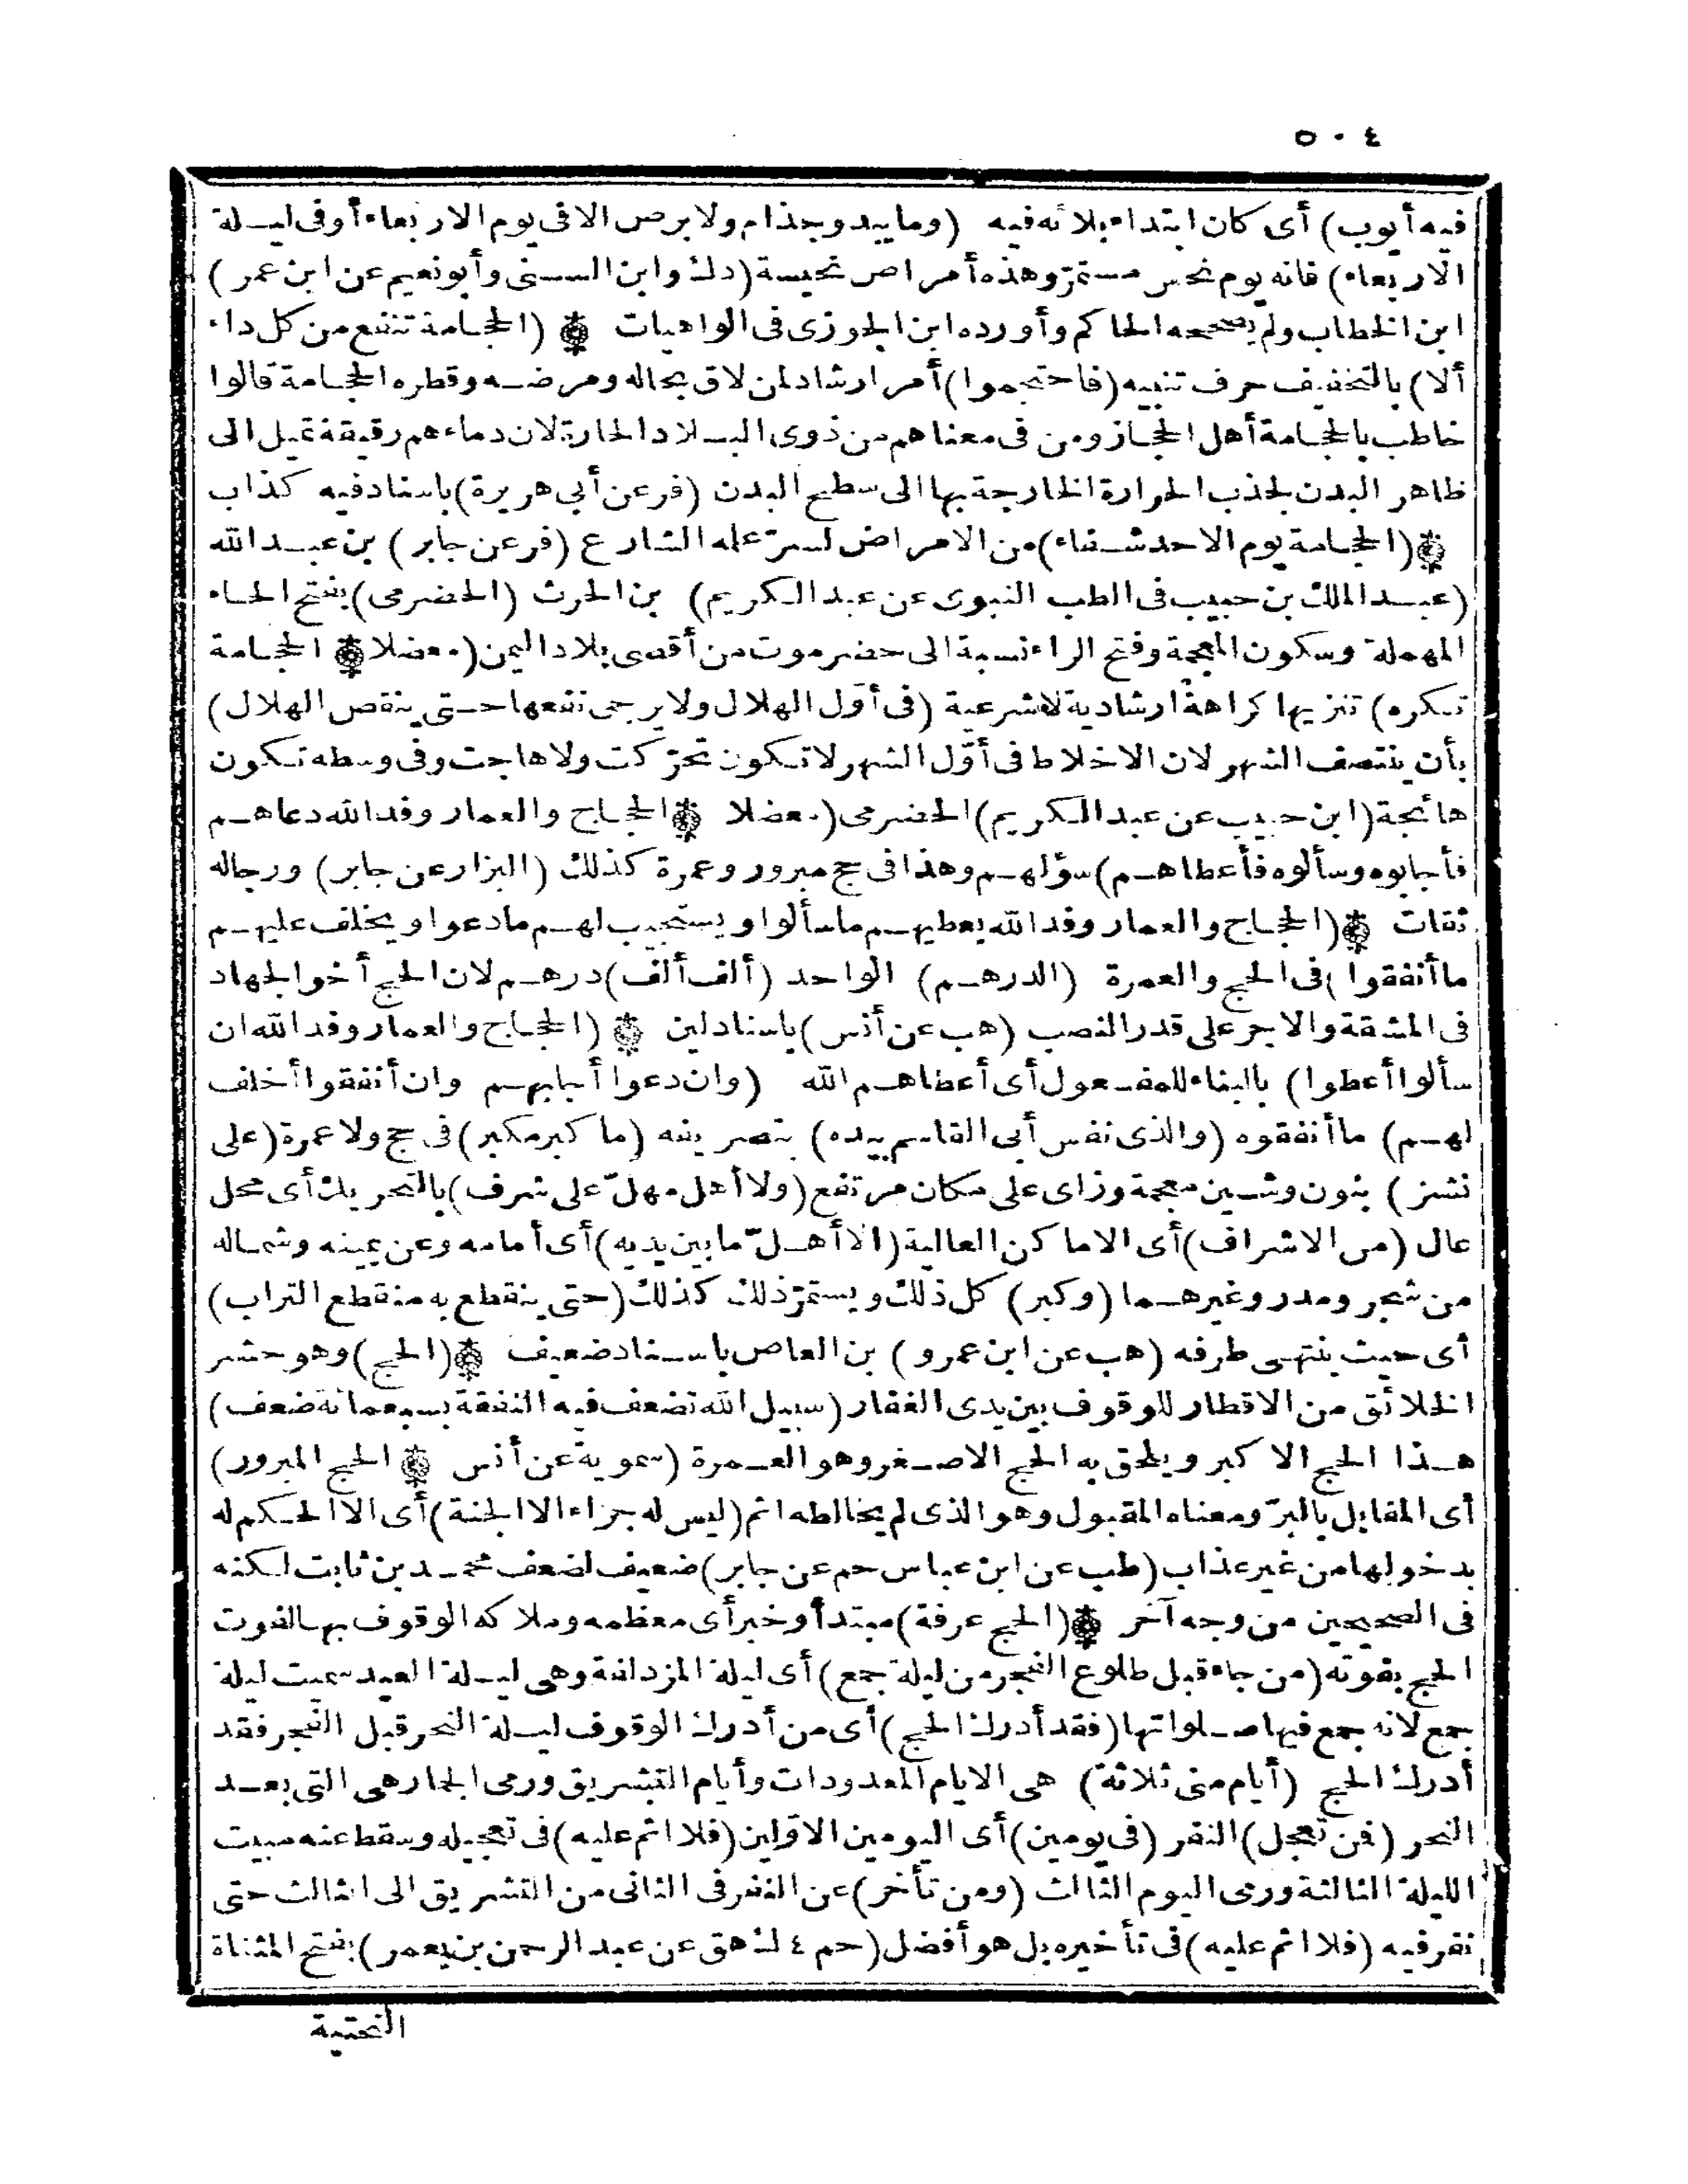 ٥٠٤
فيه أيوب) أى كان ابتداء بلائه فيه (وما يبدو جذام ولا برص الا فى يوم الاربعاء أو فى ليلة
الاربعاء) فانه يوم نحس مستمرّ وهذه أمراض نحيسة (ك وابن السنى وأبو نعيم عن ابن عمر)
ابن الخطاب ولم يصححه الحاكم وأورده ابن الجوزى فى الواهيات ۞ (الحجامة تنفع من كل داء
ألا) بالتخفيف حرف تنبيه (فاحتجموا) أمر ارشاد لمن لاق بحاله ومرضه وقطره الحجامة قالوا
خاطب بالحجامة أهل الحجاز ومن فى معناهم من ذوى البلاد الحارة لان دماءهم رقيقة تميل الى
ظاهر البدن لجذب الحرارة الخارجة بها الى سطح البدن (فر عن أبي هريرة) باسناد فيه كذاب
۞ (الحجامة يوم الاحد شفاء) من الامراض لسرّ علمه الشارع (فر عن جابر) بن عبد الله
(عبد الملك بن حبيب فى الطب النبوى عن عبد الكريم) بن الحرث (الحضرمى) بفتح الحاء
المهملة وسكون المعجمة وفتح الراء نسبة الى حضرموت من أقصى بلاد اليمن (معضلا ۞ الحجامة
تكره) تنزيها كراهة ارشادية لا شرعية (فى أوّل الهلال ولا يرجى نفعها حتى ينقص الهلال)
بأن ينتصف الشهر لان الاخلاط فى أوّل الشهر لا تكون تحرّكت ولا هاجت وفى وسطه تكون
هائجة (ابن حبيب عن عبد الكريم) الحضرمى (معضلا ۞ الحجاج والعمار وفد الله دعاهم
فأجابوه وسألوه فأعطاهم) سؤلهم وهذا فى حج مبرور وعمرة كذلك (البزار عن جابر) ورجاله
ثقات ۞ (الحجاج والعمار وفد الله يعطيهم ما سألوا ويستجيب لهم ما دعوا ويخلف عليهم
ما أنفقوا) فى الحج والعمرة (الدرهم) الواحد (ألف ألف) درهم لان الحج أخو الجهاد
فى المشقة والاجر على قدر النصب (هب عن أنس) باسناد لين ۞ (الحجاج والعمار وفد الله ان
سألوا أعطوا) بالبناء للمفعول أى أعطاهم الله (وان دعوا أجابهم وان أنفقوا أخلف
لهم) ما أنفقوه (والذى نفس أبى القاسم بيده) بتصريفه (ما كبر مكبر) فى حج ولا عمرة (على
نشز) بنون وشين معجمة وزاى على مكان مرتفع (ولا أهل مهلّ على شرف) بالتحريك أى محل
عال (من الاشراف) أى الاماكن العالية (الا أهلّ ما بين يديه) أى أمامه وعن يمينه وشماله
من شجر ومدر وغيرهما (وكبر) كل ذلك ويستمرّ ذلك كذلك (حتى ينقطع به منقطع التراب)
أى حيث ينتهى طرفه (هب عن ابن عمرو) بن العاص باسناد ضعيف ۞ (الحج) وهو حشر
الخلائق من الاقطار للوقوف بين يدى الغفار (سبيل الله تضعف فيه النفقة بسبعمائة ضعف)
هذا الحج الاكبر ويلحق به الحج الاصغر وهو العمرة (سمويه عن أنس ۞ الحج المبرور)
أى المقابل بالبرّ ومعناه المقبول وهو الذى لم يخالطه اثم (ليس له جزاء الا الجنة) أى الا الحكم له
بدخولها من غير عذاب (طب عن ابن عباس حم عن جابر) ضعيف لضعف محمد بن ثابت لكنه
فى الصحيحين من وجه آخر ۞ (الحج عرفة) مبتدأ وخبر أى معظمه وملاكه الوقوف بها لفوت
الحج بفوته (من جاء قبل طلوع الفجر من ليلة جمع) أى ليلة المزدلفة وهى ليلة العيد سميت ليلة
جمع لانه جمع فيها صلواتها (فقد أدرك الحج) أى من أدرك الوقوف ليلة النحر قبل الفجر فقد
أدرك الحج (أيام منى ثلاثة) هى الايام المعدودات وأيام التشريق ورمى الجمار هى التى بعد
النحر (فمن تعجل) النفر (فى يومين) أى اليومين الاوّلين (فلا اثم عليه) فى تعجيله وسقط عنه مبيت
الليلة الثالثة ورمى اليوم الثالث (ومن تأخر) عن النفر فى الثانى من التشريق الى الثالث حتى
نفر فيه (فلا اثم عليه) فى تأخيره بل هو أفضل (حم ٤ ك هق عن عبد الرحمن بن يعمر) بفتح المثناة
التحتية